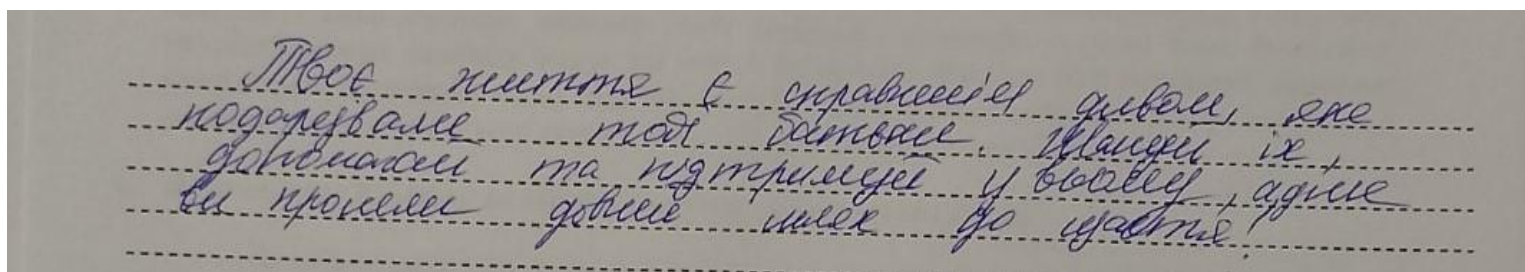 Твоє життя є справжнім дивом, яке
подарували тобі батьки. Шануй їх,
допомагай та підтримуй у всьому, адже
ви пройшли довгий шлях до щастя!